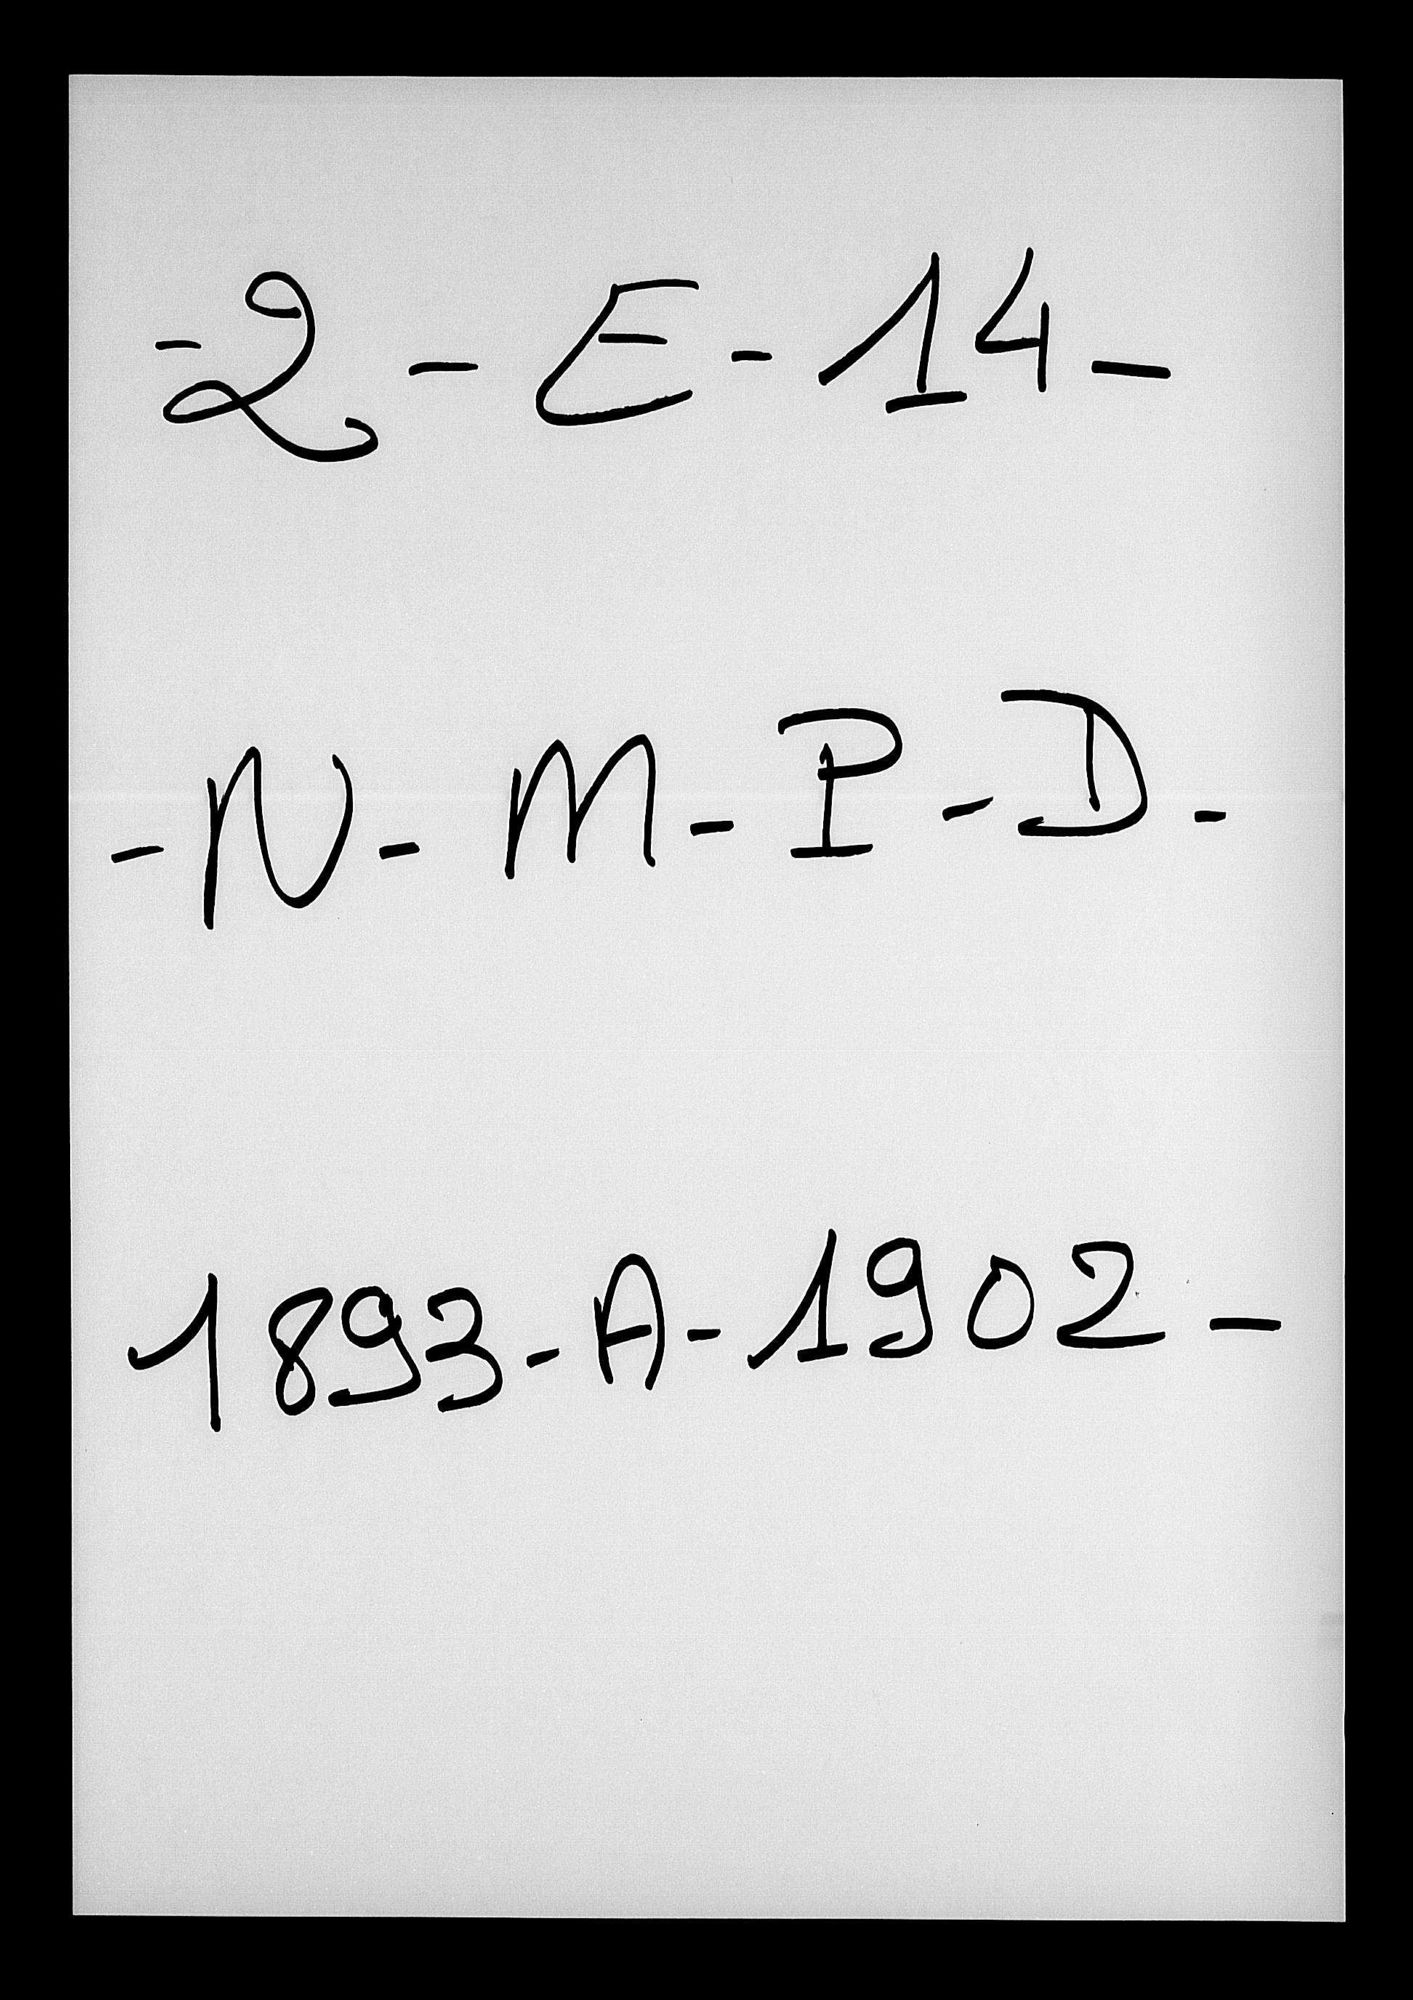 -2-E-14-
-N-M-P-D-
1893-A-1902-